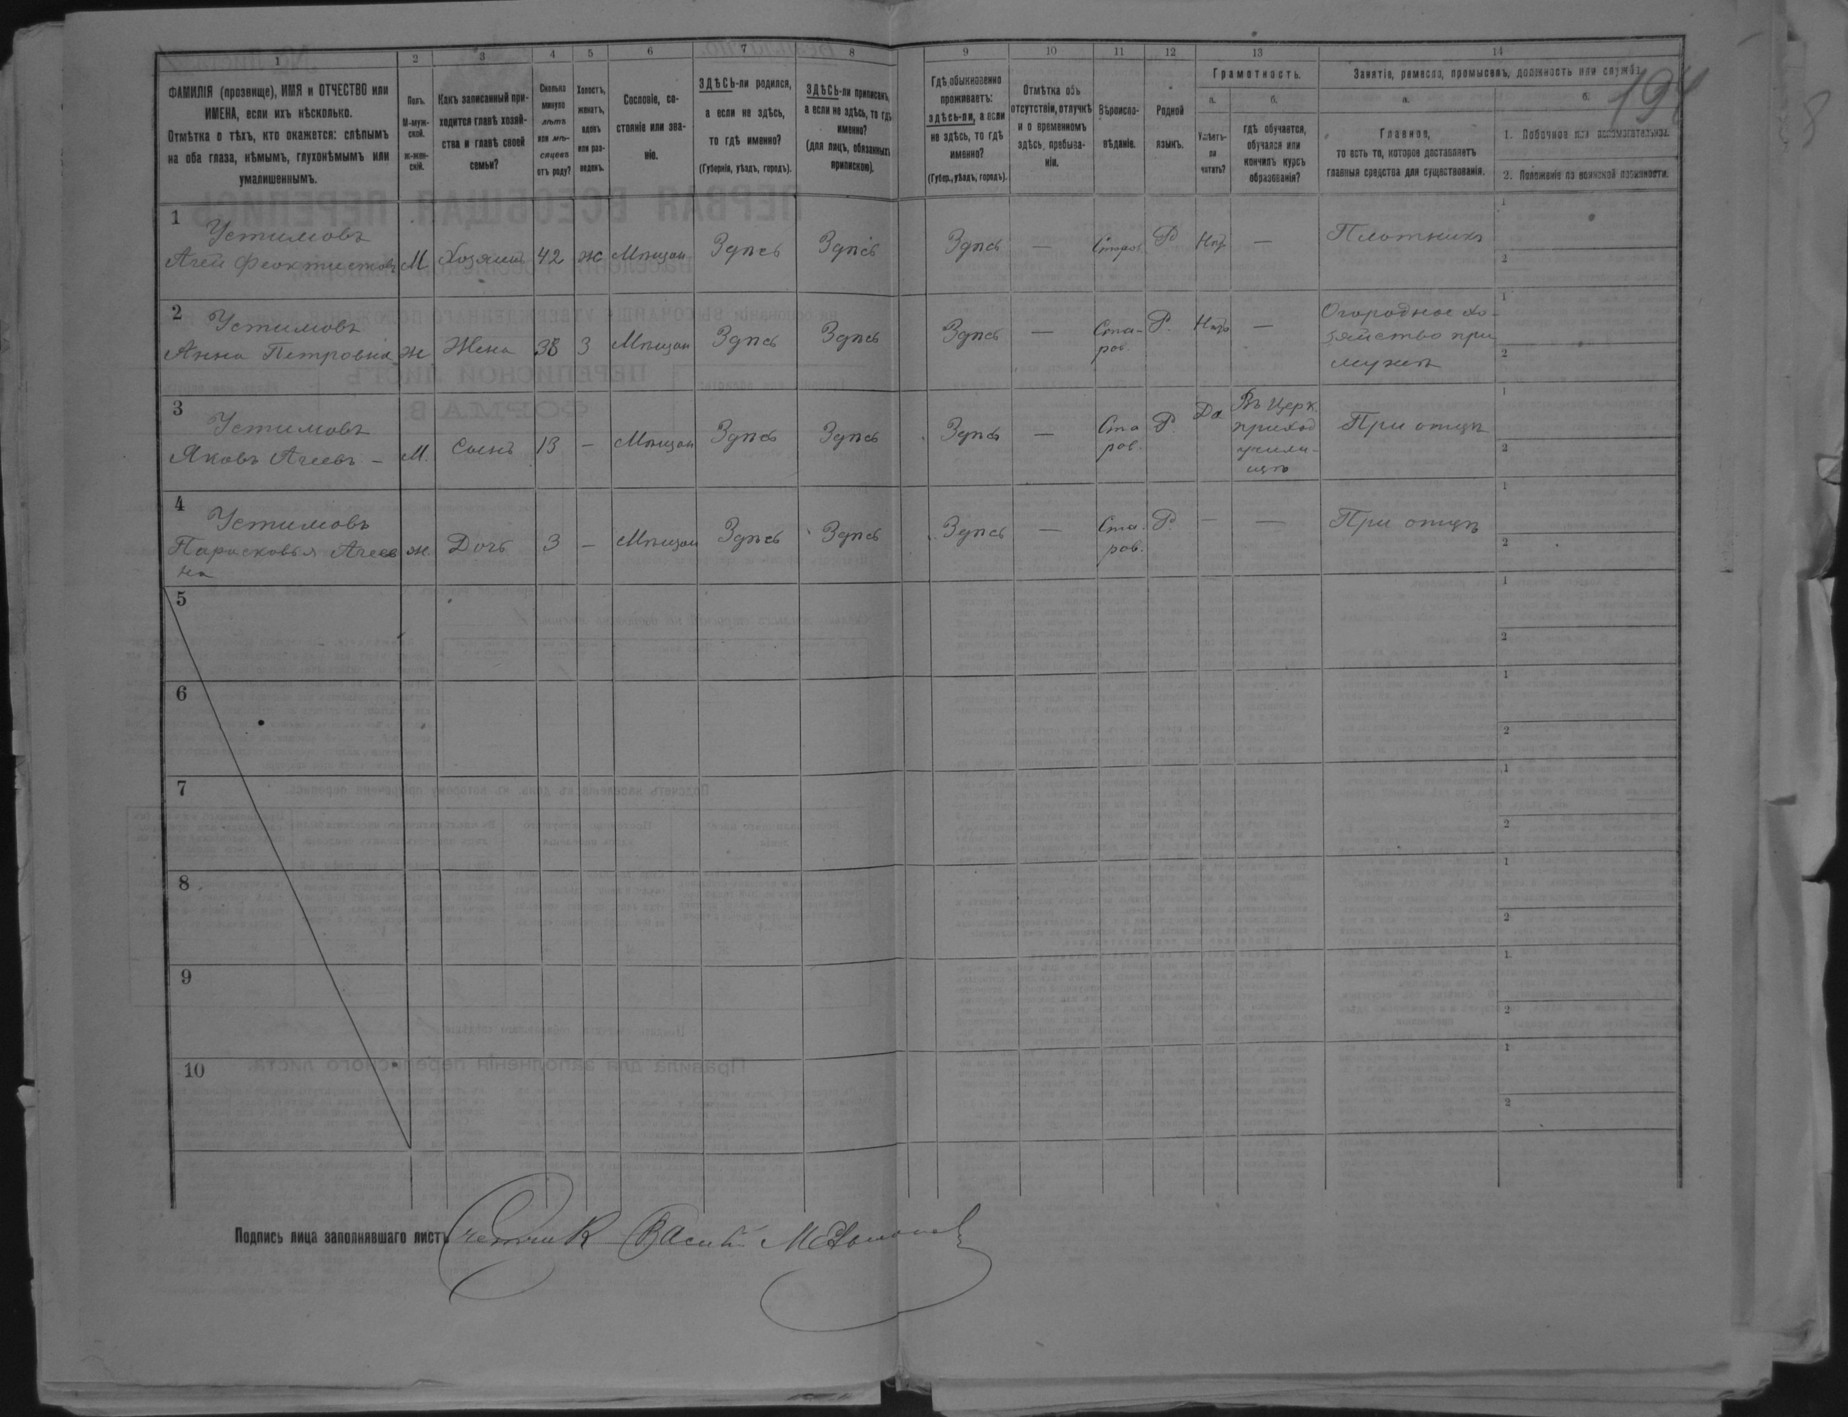 194
1 2 3 4 5 6 7 8 9 10 11 12 13 14
ФАМИЛІЯ (прозвище), ИМЯ и ОТЧЕСТВО или
ИМЕНА, если ихъ нѣсколько.
Отмѣтка о тѣхъ, кто окажется: слѣпымъ
на оба глаза, нѣмымъ, глухонѣмымъ или
умалишеннымъ.
Полъ.
М-муж-
ской.
ж-жен-
скій.
Какъ записанный при-
ходится главѣ хозяй-
ства и главѣ своей
семьи?
Сколько
минуло
лѣтъ
или мѣ-
сяцевъ
отъ роду?
Холостъ,
женатъ,
вдовъ
или раз-
веденъ.
Сословіе, со-
стояніе или зва-
ніе.
ЗДѢСЬ-ли родился,
а если не здѣсь,
то гдѣ именно?
(Губернія, уѣздъ, городъ).
ЗДѢСЬ-ли приписанъ,
а если не здѣсь, то гдѣ
именно?
(для лицъ, обязанныхъ
припискою).
Гдѣ обыкновенно
проживаетъ:
здѣсь-ли, а если
не здѣсь, то гдѣ
именно?
(Губер., уѣздъ, городъ).
Отмѣтка объ
отсутствіи, отлучкѣ
и о временномъ
здѣсь пребыва-
ніи.
Вѣроиспо-
вѣданіе.
Родной
языкъ.
Грамотность.
а.
Умѣетъ-
ли
читать?
б.
гдѣ обучается,
обучался или
кончилъ курсъ
образованія?
Занятіе, ремесло, промыселъ, должность или служба.
а.
Главное,
то есть то, которое доставляетъ
главныя средства для существованія.
б.
1. Побочное или вспомогательное.
2. Положеніе по воинской повинности.
1
Устимовъ
Агей Феоктистовъ М Хозяинъ 42 ж Мѣщан Здѣсь Здѣсь Здѣсь — Старов. Р. Нѣтъ — Плотникъ
1
2
2
Устимовъ
Анна Петровна ж Жена 38 З Мѣщан Здѣсь Здѣсь Здѣсь — Ста-
ров. Р. Нѣтъ — Огородное хо-
зяйство при
мужѣ
1
2
3
Устимовъ
Яковъ Агеевъ – М. Сынъ 13 — Мѣщан Здѣсь Здѣсь Здѣсь — Ста
ров. Р. Да Въ Церк.
приход
учили-
щѣ При отцѣ
1
2
4
Устимовъ
Парасковья Агеев
на ж. Дочь 3 — Мѣщан Здѣсь Здѣсь Здѣсь — Ста.
ров. Р. — — При отцѣ
1
2
5
1
2
6
1
2
7
1
2
8
1
2
9
1
2
10
1
2
Подпись лица заполнявшаго листъ Счетчик